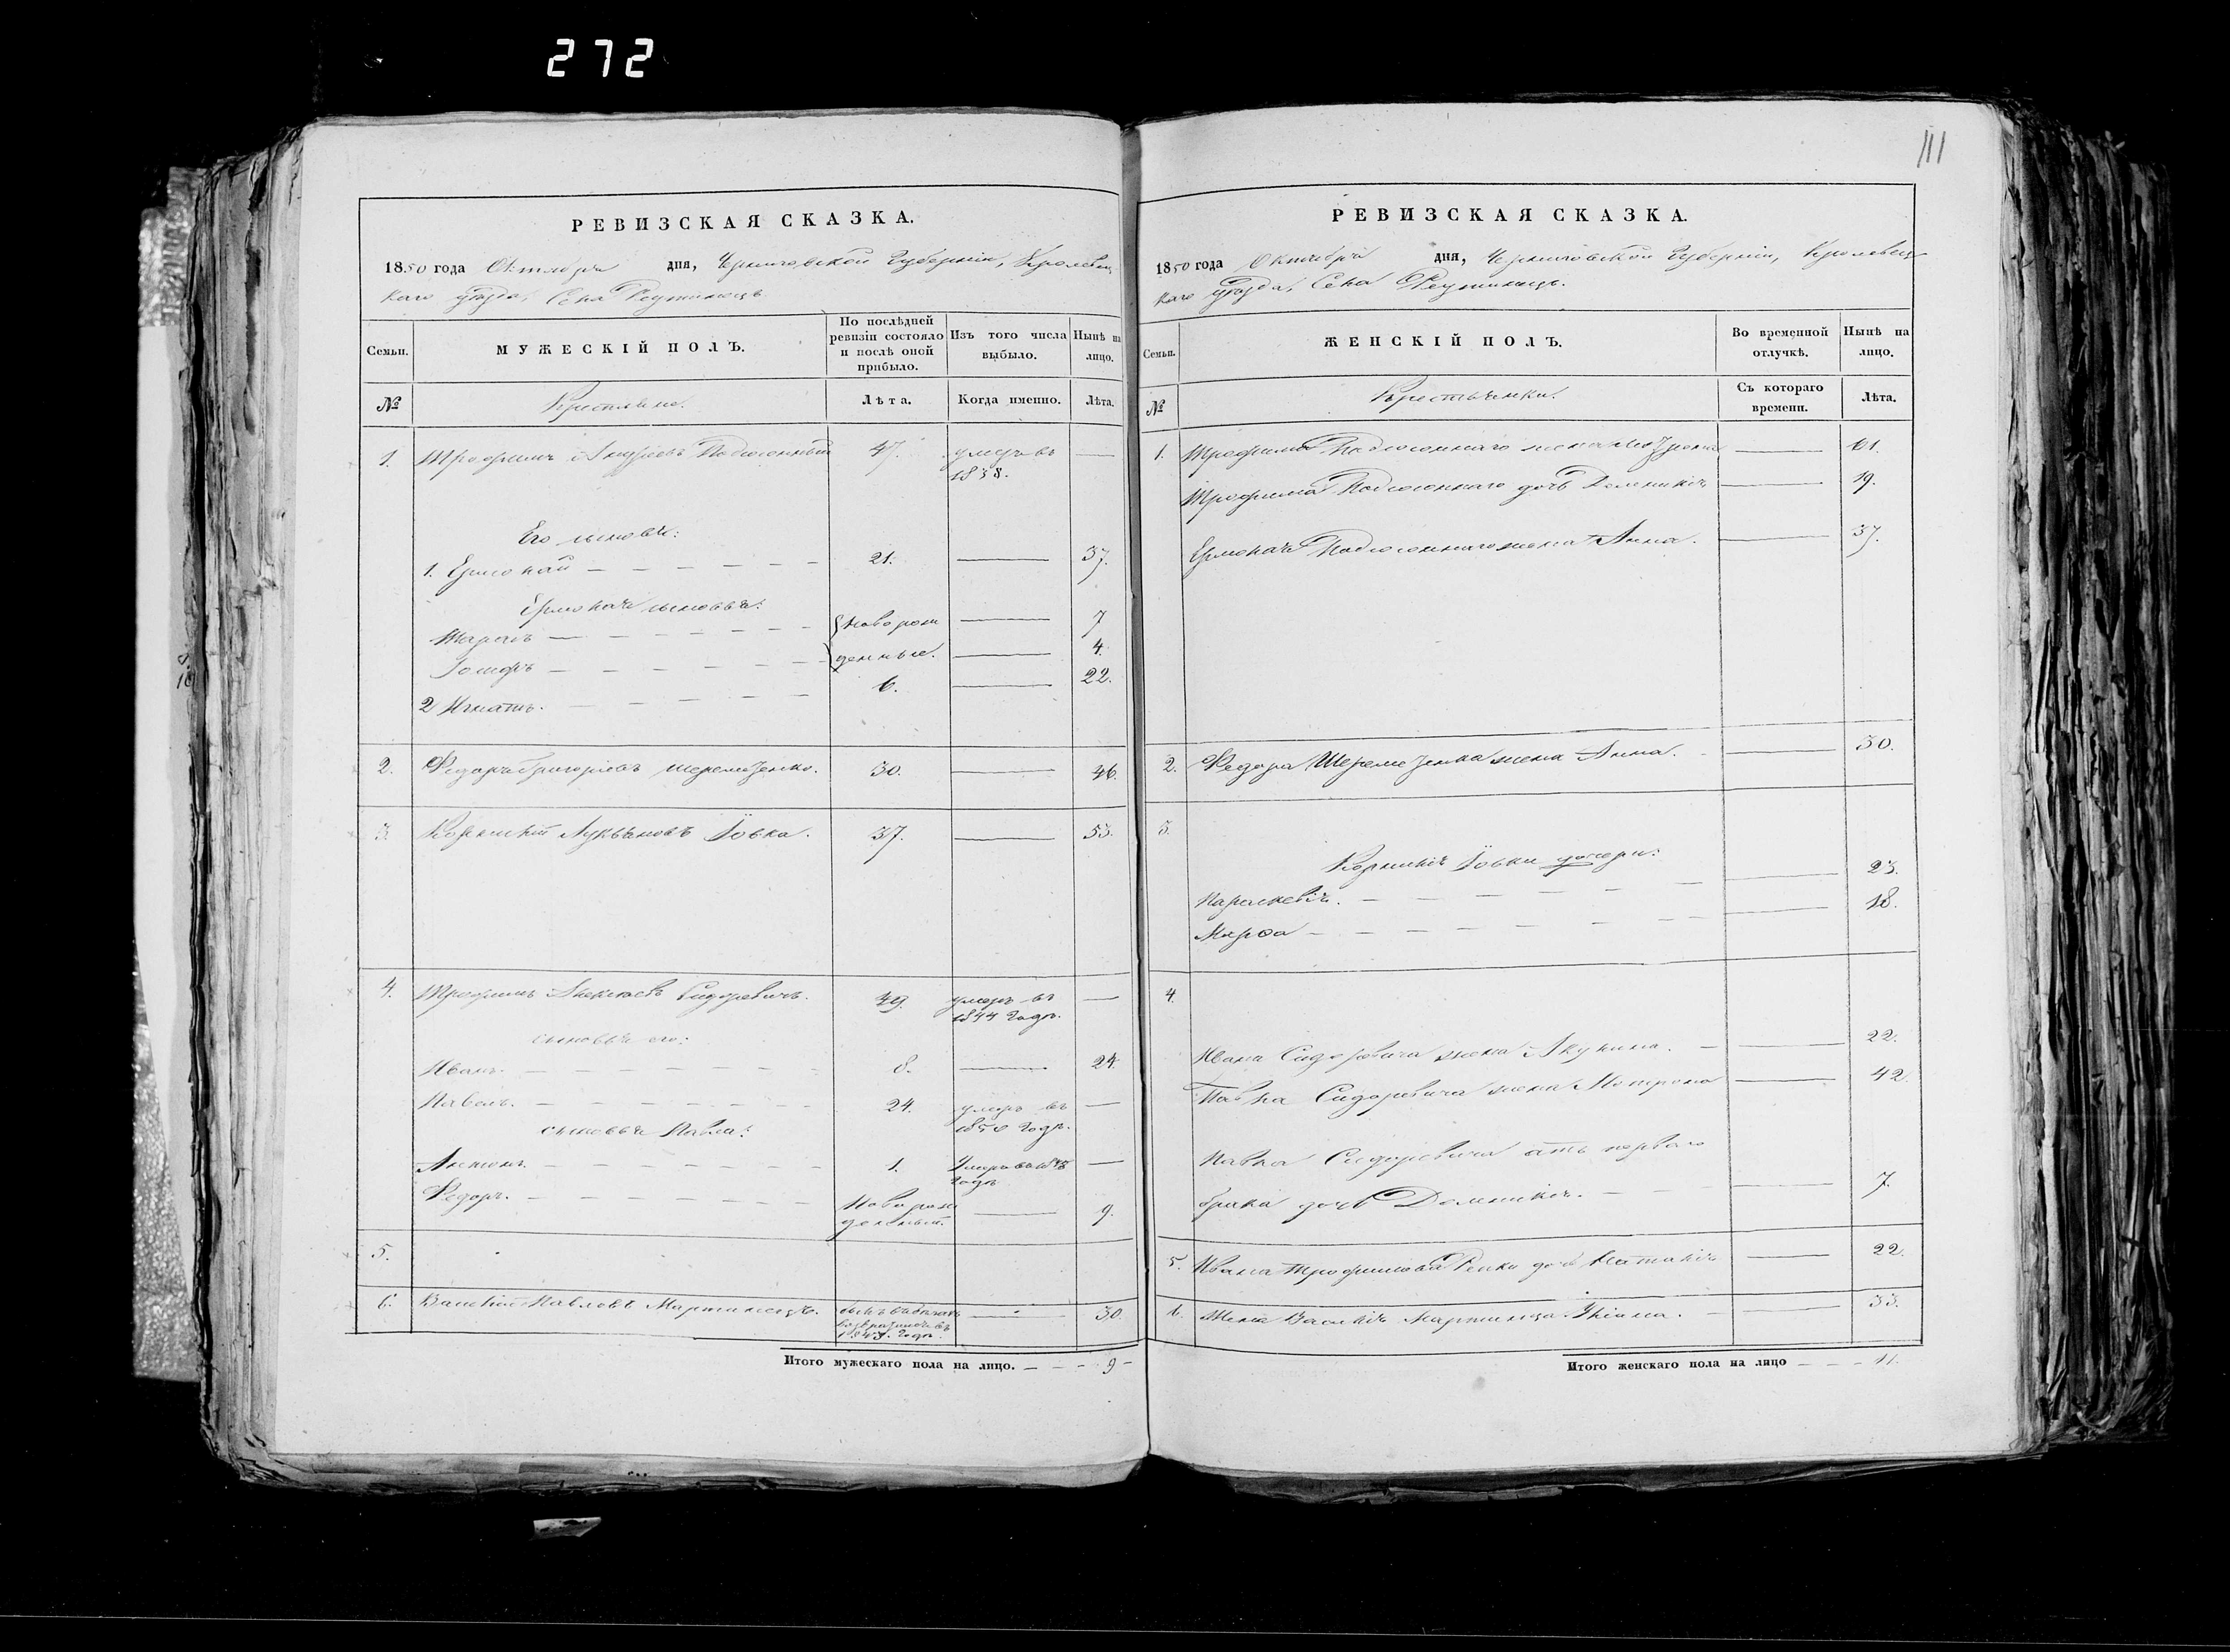 272
111
РЕВИЗСКАЯ СКАЗКА.
1850 года Октября дня, Черниговской Губерніи, Кролевец
каго уѣзда, Села Реутинецъ
Семьи.
МУЖЕСКІЙ ПОЛЪ.
По послѣдней
ревизіи состояло
и послѣ оной
прибыло.
Изъ того числа
выбыло.
Нынѣ на
лицо.
№
Крестьяне.
Лѣта.
Когда именно.
Лѣта.
1. Трофимъ 47. умеръ въ —
1838.
Его сыновья:
1. Ермолай 21. — 37.
Ермолая сыновья:
Тарасъ — новорож — 7
денные. — 4.
2 Игнатъ. 6. — 22.
2. Федоръ Григорьевъ 30. — 46.
3. Корнилій Лукьяновъ Іовка. 37. — 53.
4. Трофимъ Алексѣевъ Сидоревичъ. 49. умеръ въ —
1844 годѣ.
сыновья его:
Иванъ. 8. — 24.
Павелъ. 24. умеръ въ —
1850 годѣ.
сыновья Павла:
Антонъ. 1. умеръ въ —
годѣ
Федоръ. Новорож — 9.
денный.
5.
6. Василій Павловъ Мартинецъ. — 30.
возвратился въ
годѣ.
Итого мужескаго пола на лицо. — — - 9 -
РЕВИЗСКАЯ СКАЗКА.
1850 года Октября дня, Черниговской Губерніи, Кролевец
каго уѣзда, Села Реутинецъ.
Семьи.
ЖЕНСКІЙ ПОЛЪ.
Во временной
отлучкѣ.
Нынѣ на
лицо.
№
Крестьянки.
Съ котораго
времени.
Лѣта.
1. Трофима жена — 61.
Трофима дочь Домникія — 19.
Ермолая жена Анна. — 37.
2. Федора жена Анна. — 30.
3.
Корнилія Іовки дочери:
Параскевія. — 23.
Марѳа — 18.
4.
Ивана Сидоревича жена Акулина. — 22.
Павла Сидоревича жена Мотрона — 42
Павла Сидоревича отъ перваго
брака дочь Домникія. — 7.
5. Ивана Трофимова дочь Наталія — 22.
6. Жена Василія Мартинца Уліана. — 33.
Итого женскаго пола на лицо — — - 11.